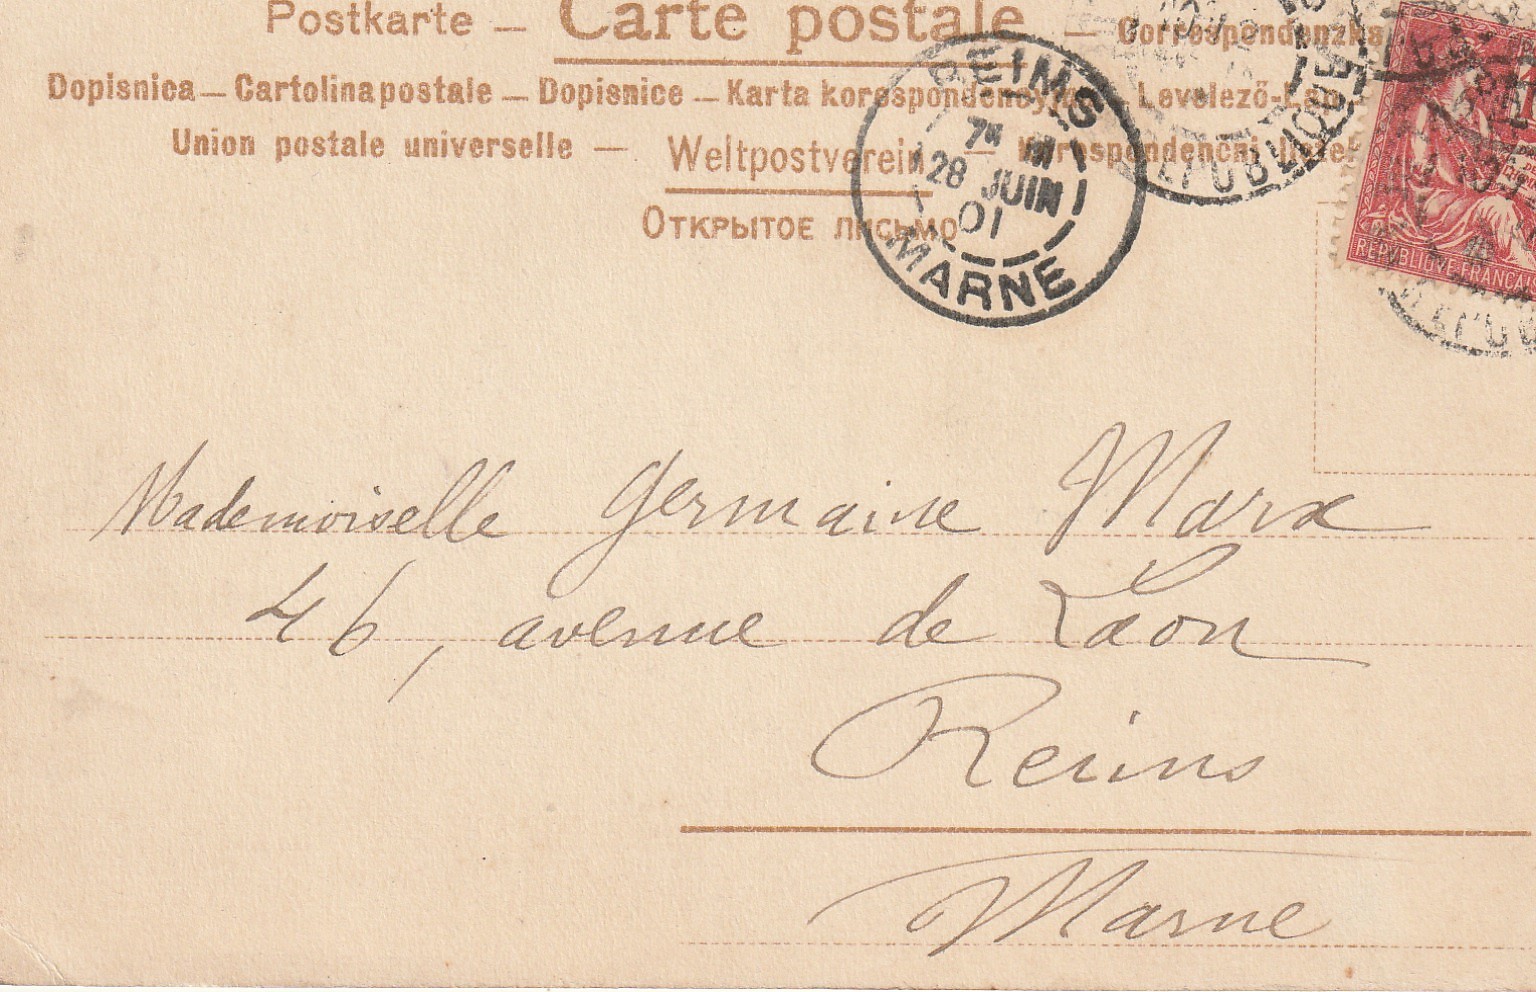 Postkarte — Carte postale — Correspondenzka
Dopisnica — Cartolina postale — Dopisnice — Karta korespondencyjna — Levelező-Lap
Union postale universelle — Weltpostverein — Korespondenčni listek
Открытое письмо
REIMS
7 M
28 JUIN
01
MARNE
REPUBLIQUE
REPUBLIQUE FRANCAIS
Mademoiselle Germaine Marx
46, avenue de Laon
Reims
Marne